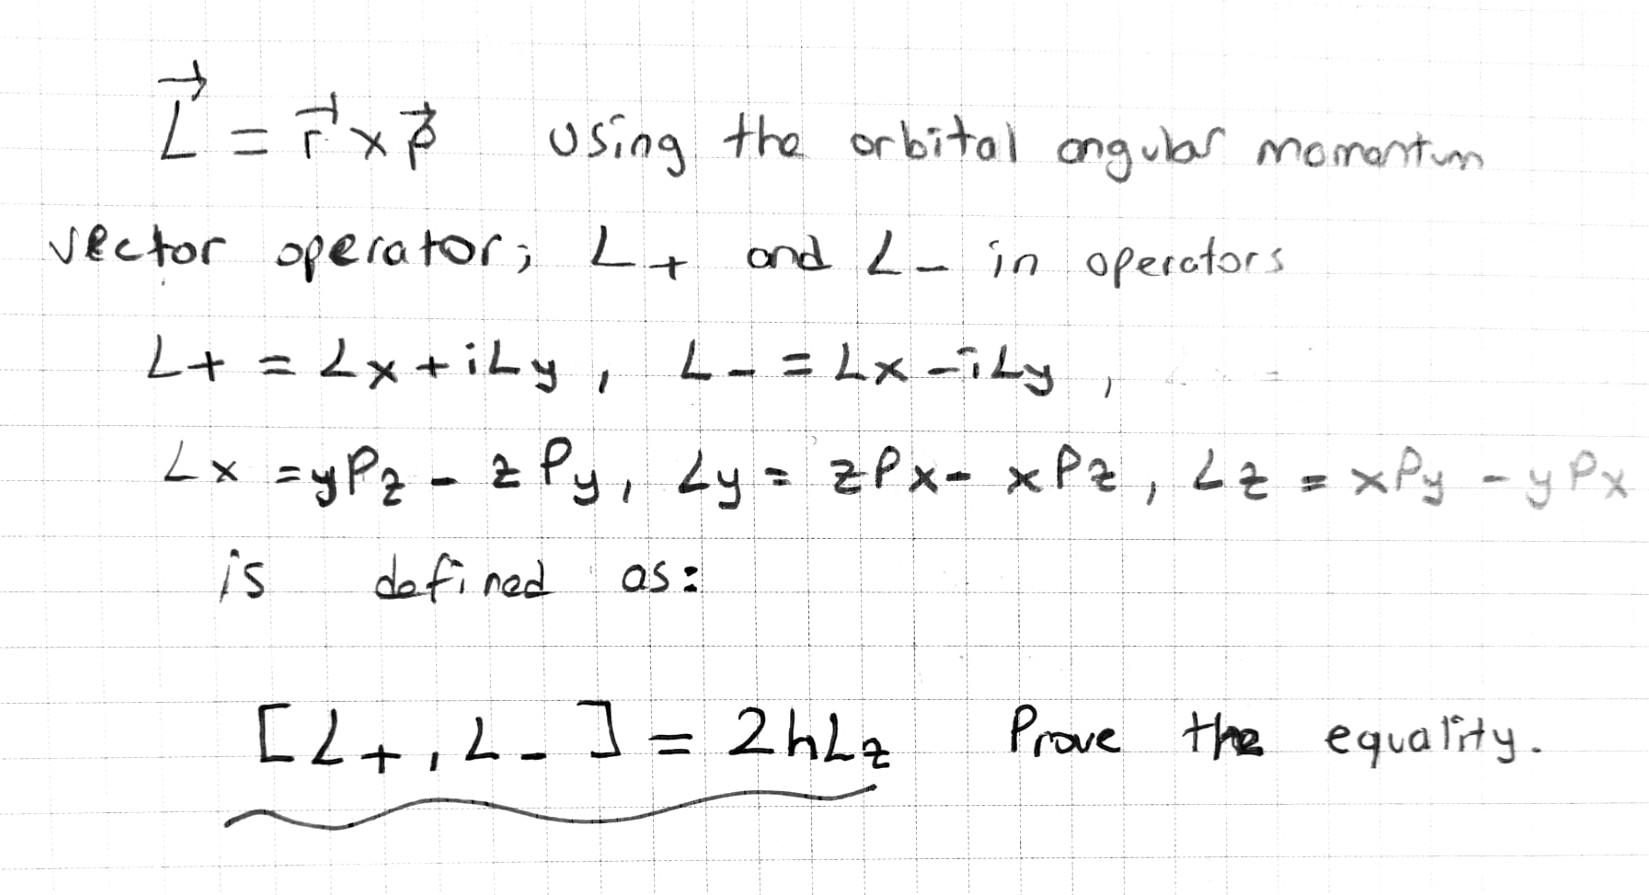 L⃗ = r⃗ x p⃗ using the orbital angular momentum
vector operator; L+ and L- in operators
L+ = Lx + iLy , L- = Lx - iLy ,
Lx = yPz - zPy, Ly = zPx - xPz , Lz = xPy - yPx
is defined as:
[L+, L-] = 2hLz Prove the equality.